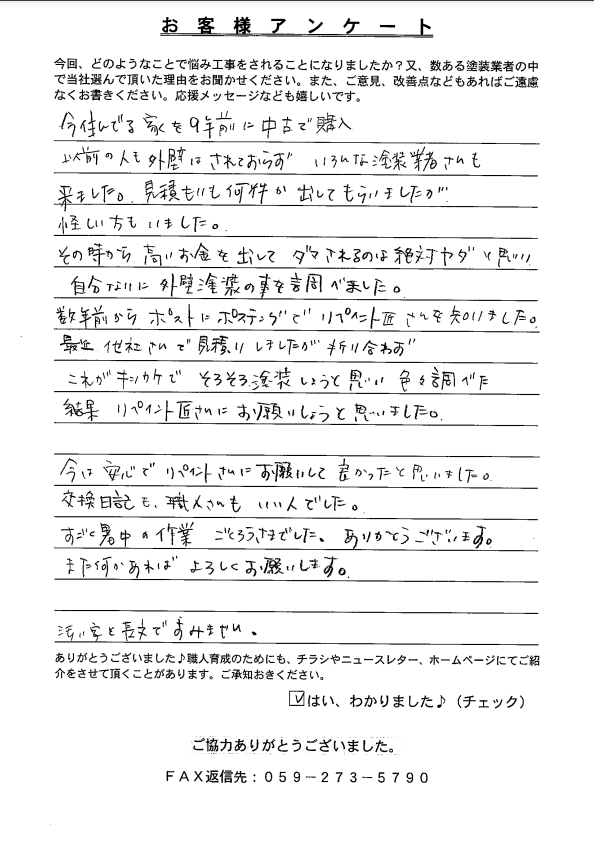 お客様アンケート
今回、どのようなことで悩み工事をされることになりましたか？又、数ある塗装業者の中
で当社選んで頂いた理由をお聞かせください。また、ご意見、改善点などもあればご遠慮
なくお書きください。応援メッセージなども嬉しいです。
今住んでる家を9年前に中古で購入
以前の人も外壁はされておらず いろんな塗装業者さんも
来ました。見積もりも何件か出してもらいましたが
怪しい方もいました。
その時から高いお金を出してダマされるのは絶対ヤダと思い
自分なりに外壁塗装の事を調べました。
数年前からポストにポスティングでリペイント匠さんを知りました。
最近他社さんで見積りしましたが折り合わず
これがキッカケでそろそろ塗装しようと思い色々調べた
結果 リペイント匠さんにお願いしようと思いました。
今は安心でリペイントさんにお願いして良かったと思いました。
交換日記も、職人さんもいい人でした。
すごく暑中の作業 ごくろうさまでした。ありがとうございます。
また何かあればよろしくお願いします。
汚い字と長文ですみません。
ありがとうございました♪職人育成のためにも、チラシやニュースレター、ホームページにてご紹
介をさせて頂くことがあります。ご承知おきください。
☑はい、わかりました♪（チェック）
ご協力ありがとうございました。
ＦＡＸ返信先：０５９－２７３－５７９０